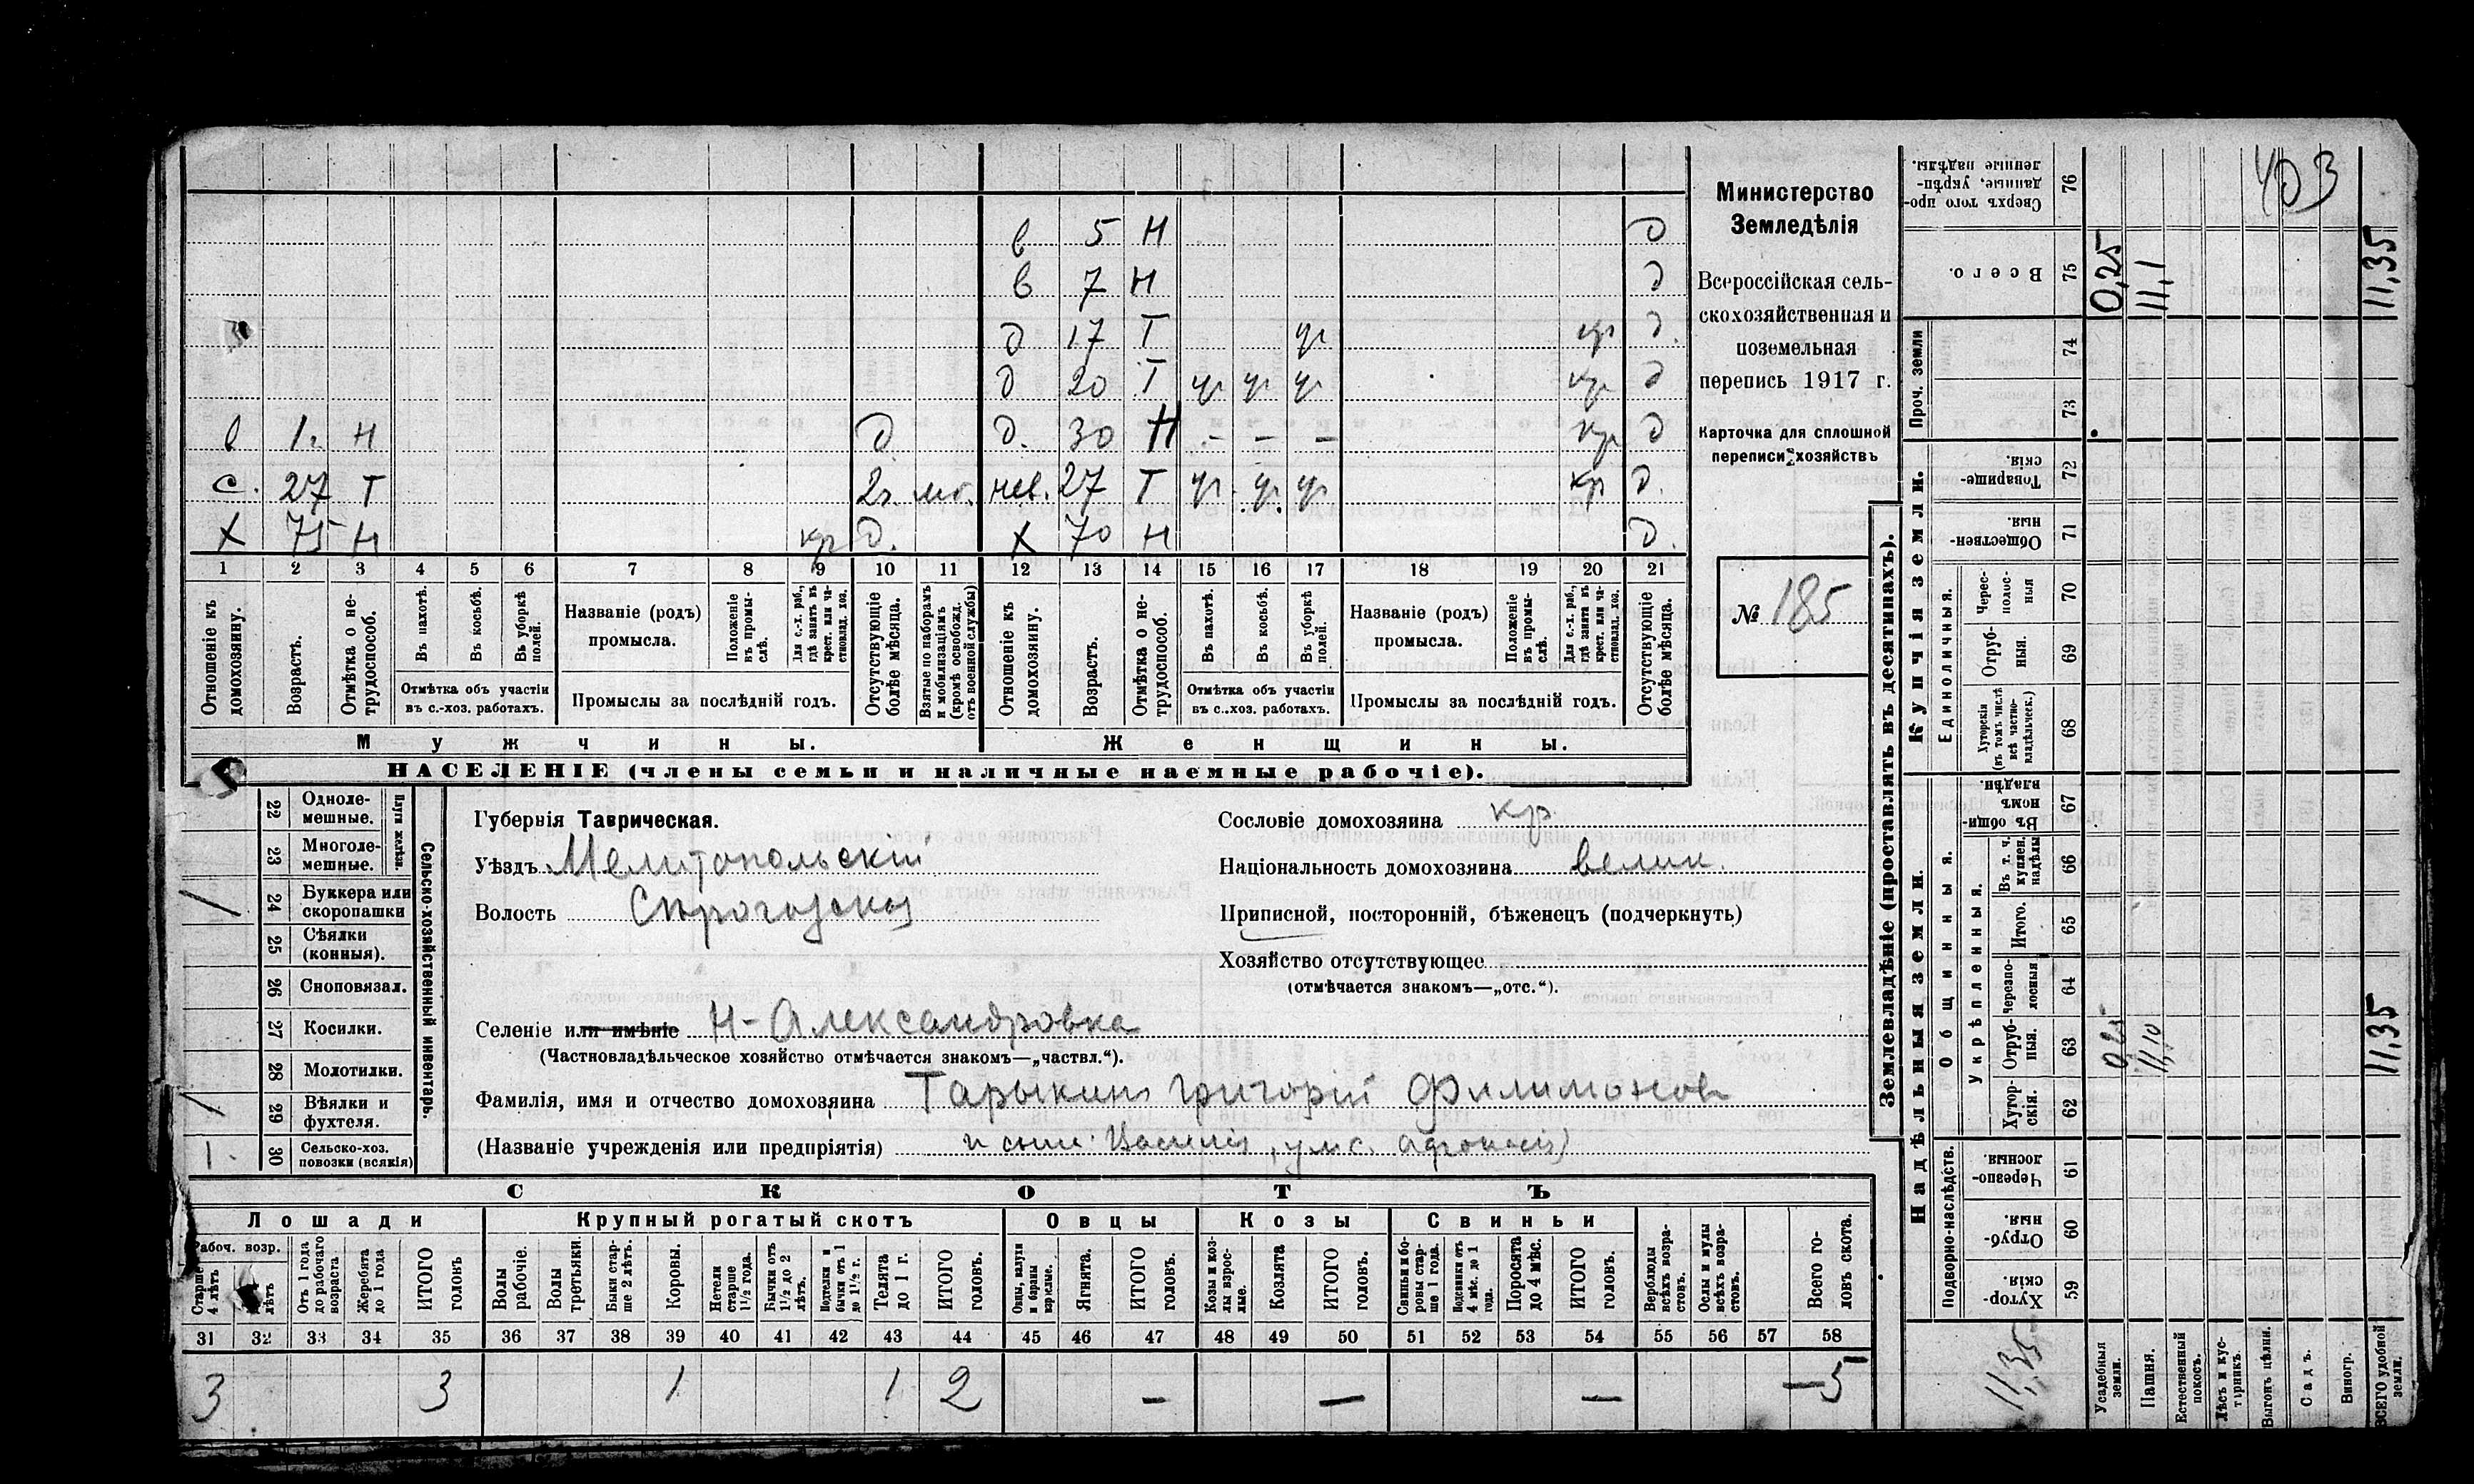 403
в 5 Н д
в 7 Н д
д 17 Т ур кр д.
д 20 Т ур ур ур кр д
в 1 г. Н д. д. 30 Н - - - кр д
с. 27 Т 2 г. мб. нев. 27 Т ур. ур. ур кр д.
х 75 Н кр д. х 70 Н д.
1 2 3 4 5 6 7 8 9 10 11 12 13 14 15 16 17 18 19 20 21
Отношеніе къ домохозяину.
Возрастъ.
Отмѣтка о нетрудоспособ.
Въ пахотѣ.
Въ косьбѣ.
Въ уборкѣ полей.
Отмѣтка объ участіи въ с.-хоз. работахъ.
Названіе (родъ) промысла.
Положеніе въ промыслѣ.
Для с.-х. раб., гдѣ занятъ въ крест. или частновлад. хоз.
Промыслы за послѣдній годъ.
Отсутствующіе болѣе мѣсяца.
Взятые по наборамъ и мобилизаціямъ (кромѣ освобожд. отъ военной службы)
Отношеніе къ домохозяину.
Возрастъ.
Отмѣтка о нетрудоспособ.
Въ пахотѣ.
Въ косьбѣ.
Въ уборкѣ полей.
Отмѣтка объ участіи въ с.-хоз. работахъ.
Названіе (родъ) промысла.
Положеніе въ промыслѣ.
Для с.-х. раб., гдѣ занята въ крест. или частновлад. хоз.
Промыслы за послѣдній годъ.
Отсутствующіе болѣе мѣсяца.
Мужчины. Женщины.
НАСЕЛЕНІЕ (члены семьи и наличные наемные рабочіе).
Министерство
Земледѣлія
Всероссійская сель-
скохозяйственная и
поземельная
перепись 1917 г.
Карточка для сплошной
переписи хозяйствъ
№ 185
Сельско-хозяйственный инвентарь.
Плуги желѣзн.
22 Однолемешные.
23 Многолемешные.
1 24 Буккера или скоропашки
25 Сѣялки (конныя).
26 Сноповязал.
27 Косилки.
28 Молотилки.
1 29 Вѣялки и фухтеля.
1. 30 Сельско-хоз. повозки (всякія)
Губернія Таврическая.
Уѣздъ Мелитопольскій
Волость
Сословіе домохозяина кр.
Національность домохозяина велик.
Приписной, посторонній, бѣженецъ (подчеркнуть)
Хозяйство отсутствующее
(отмѣчается знакомъ—„отс.“).
Селеніе или имѣніе Н-Александровка
(Частновладѣльческое хозяйство отмѣчается знакомъ—„частвл.“).
Фамилія, имя и отчество домохозяина Тарыкинъ Григорій Филимонов
(Названіе учрежденія или предпріятія) и сын. Василій
СКОТЪ
Лошади Крупный рогатый скотъ Овцы Козы Свиньи
Рабоч. возр.
Старше 4 лѣтъ
лѣтъ
Отъ 1 года до рабочаго возраста
Жеребята до 1 года
ИТОГО головъ
Волы рабочіе.
Волы третьяки.
Быки старше 2 лѣтъ.
Коровы.
Нетели старше 1½ года.
Бычки отъ 1½ до 2 лѣтъ.
Подтелки и бычки отъ 1 до 1½ г.
Телята до 1 г.
ИТОГО головъ.
Овцы, валухи и бараны взрослые.
Ягнята.
ИТОГО головъ.
Козы и козлы взрослые.
Козлята
ИТОГО головъ.
Свиньи и боровы старше 1 года.
Подсвинки отъ 4 мѣс. до 1 года.
Поросята до 4 мѣс.
ИТОГО головъ.
Верблюды всѣхъ возрастовъ.
Ослы и мулы всѣхъ возрастовъ.
Всего головъ скота.
31 32 33 34 35 36 37 38 39 40 41 42 43 44 45 46 47 48 49 50 51 52 53 54 55 56 57 58
3 3 1 1 2 — — — —5
Землевладѣніе (проставлять въ десятинахъ).
Надѣльныя земли. Купчія земли. Проч. земли
Подворно-наслѣдств.
Общинныя.
Укрѣпленныя.
Единоличныя.
59 Хуторскія
60 Отрубныя
61 Черезполосныя.
62 Хуторскія.
63 Отрубныя. 0,25 11,10 11,35
64 Черезполосныя
65 Итого.
66 Въ т. ч. куплен. надѣлы
67 Въ общинномъ владѣн.
68 Хуторскія (въ томъ числѣ всѣ частновладѣльческ.)
69 Отрубныя.
70 Череполосныя
71 Общественныя.
72 Товарищескія.
73
74
75 Всего. 0,25 11,1 11,35
76 Сверхъ того проданные, укрѣпленные надѣлы.
11,35
Усадебныя земли.
Пашня.
Естественный покосъ.
Лѣсъ и кустарникъ.
Выгонъ цѣлин.
Садъ.
Виногр.
ВСЕГО удобной земли.